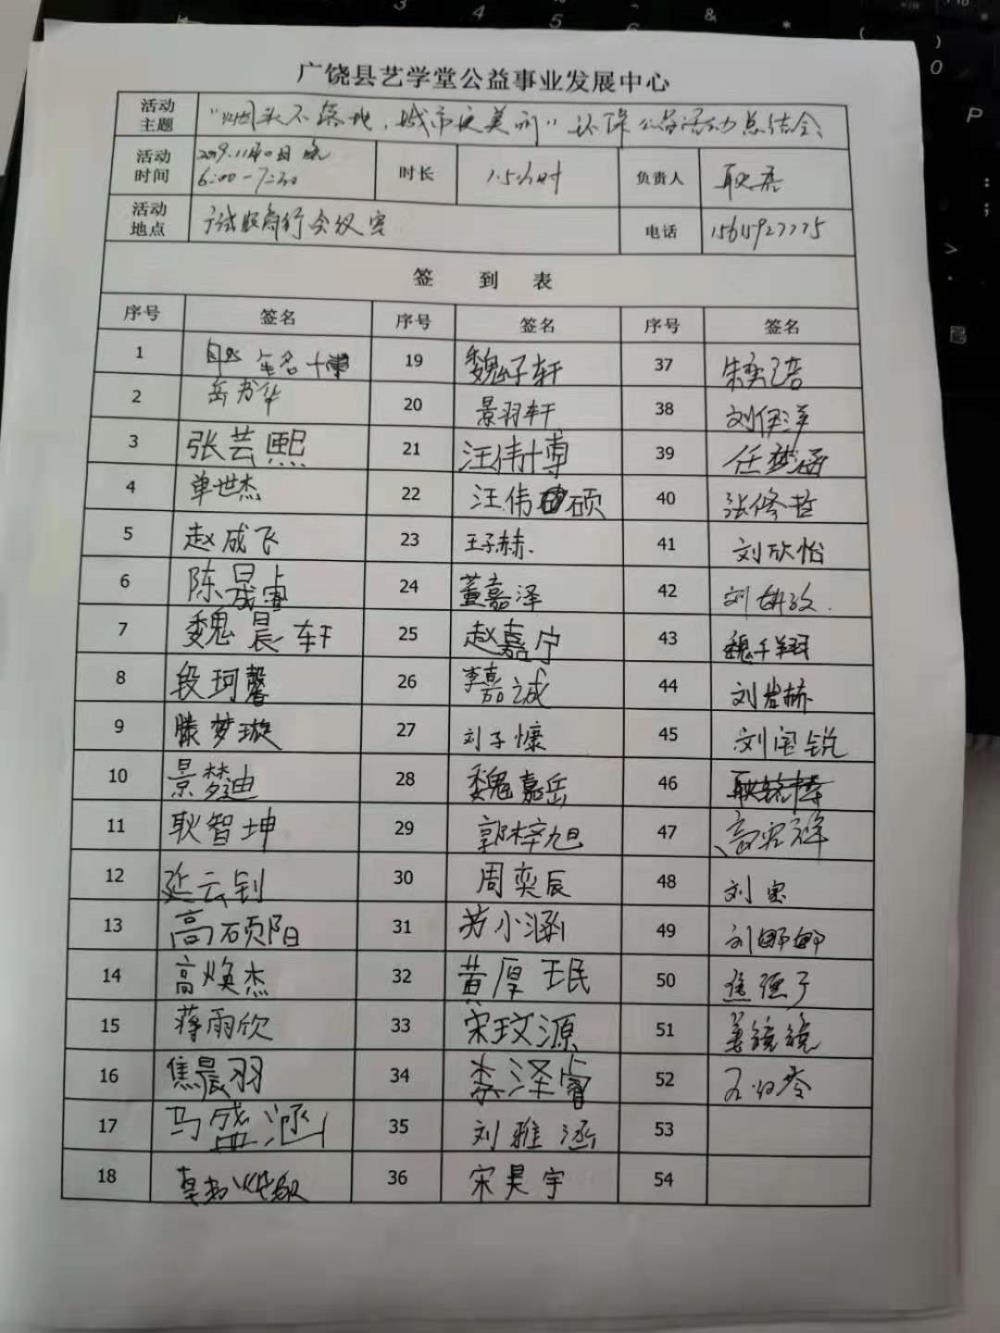 广饶县艺学堂公益事业发展中心
活动主题 "烟头不落地,城市更美丽"环保公益活动总结会
活动时间 2019.11月 日 晚 6:00-7:30 时长 1.5小时 负责人 耿
活动地点 广饶农商行会议室 电话
签 到 表
序号 签名 序号 签名 序号 签名
1 19 魏子轩 37 朱奕
2 岳 华 20 景羽轩 38 刘伊洋
3 张芸熙 21 汪伟博 39 任梦涵
4 单世杰 22 汪伟硕 40 张修哲
5 赵成飞 23 王子赫 41 刘欣怡
6 陈晟睿 24 董嘉泽 42 刘
7 魏晨轩 25 赵嘉宁 43 魏千翔
8 段珂馨 26 李嘉诚 44 刘岩赫
9 滕梦璇 27 刘子慷 45 刘 锐
10 景梦迪 28 魏嘉岳 46
11 耿智坤 29 郭梓旭 47 高 祥
12 延云钊 30 周奕辰 48 刘
13 高硕阳 31 小涵 49 刘娜娜
14 高焕杰 32 黄厚珉 50
15 蒋雨欣 33 宋玟源 51 姜镜镜
16 焦晨羽 34 泽睿 52
17 马盛涵 35 刘雅涵 53
18 36 宋昊宇 54